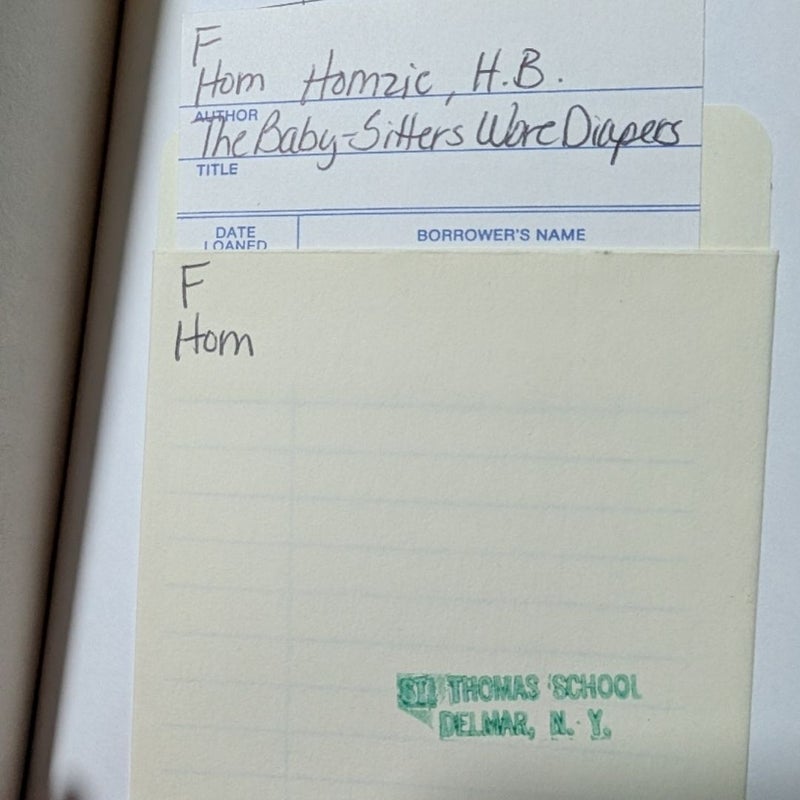 F
Hom Homzic, H.B.
AUTHOR
The Baby-Sitters Wore Diapers
TITLE
DATE LOANED
BORROWER'S NAME
F
Hom
ST. THOMAS SCHOOL
DELMAR, N. Y.